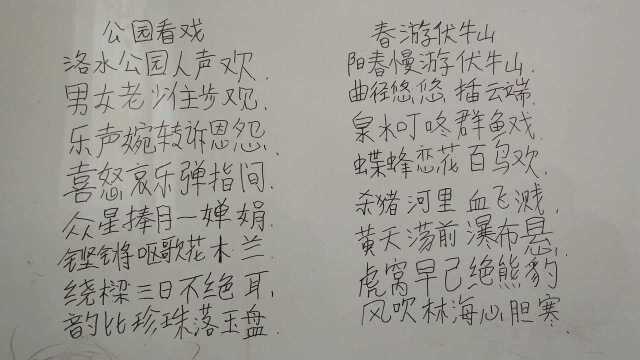 公园看戏
洛水公园人声欢.
男女老少住步观.
乐声婉转诉恩怨.
喜怒哀乐弹指间.
众星捧月一婵娟.
铿锵呕歌花木兰.
绕樑三日不绝耳,
韵比珍珠落玉盘.
春游伏牛山
阳春慢游伏牛山.
曲径悠悠插云端.
泉水叮咚群鱼戏.
蝶蜂恋花百鸟欢.
杀猪河里血飞溅.
黄天荡前瀑布悬.
虎窝早已绝熊豹
风吹林海心胆寒.